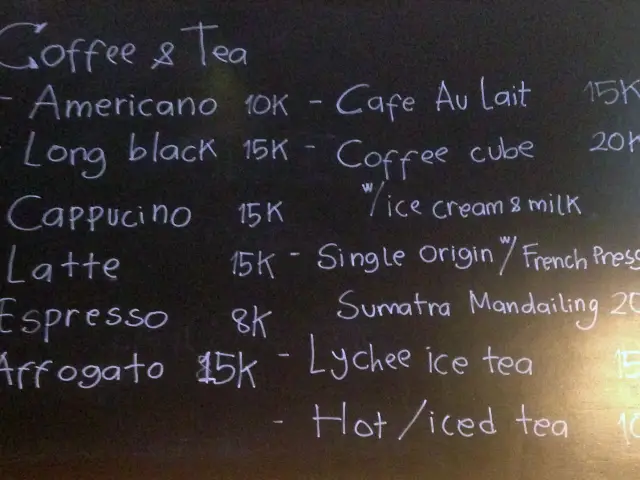 Coffee & Tea
- Americano 10K
- Long black 15K
Cappucino 15K
Latte 15K
Espresso 8K
Affogato 15K
- Cafe Au Lait 15K
- Coffee cube 20K
w/ice cream & milk
- Single origin w/ French Press
Sumatra Mandailing 20
- Lychee ice tea 15
- Hot/iced tea 10